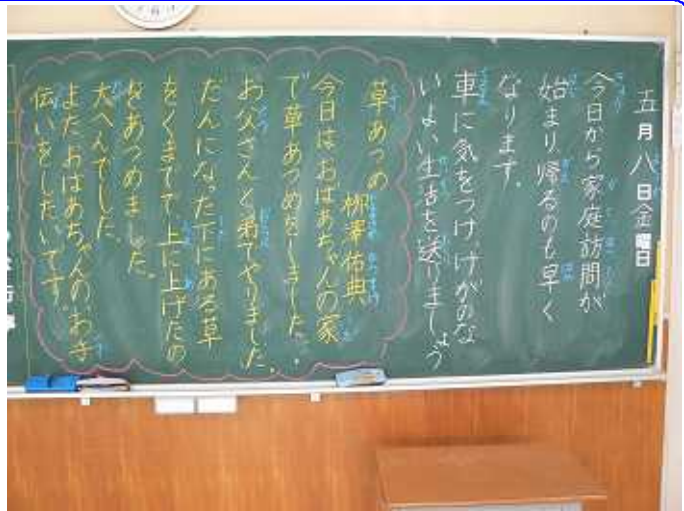 五月八日金曜日
今日から家庭訪問が
始まり、帰るのも早く
なります。
車に気をつけ、けがのな
いよい生活を送りましょう
草あつめ
柳澤佑典
今日は、おばあちゃんの家
で草あつめをしました。
お父さんと弟でやりました。
だんになった下にある草
をくまでで上に上げたの
をあつめました。
大へんでした。
またおばあちゃんのお手
伝いをしたいです。